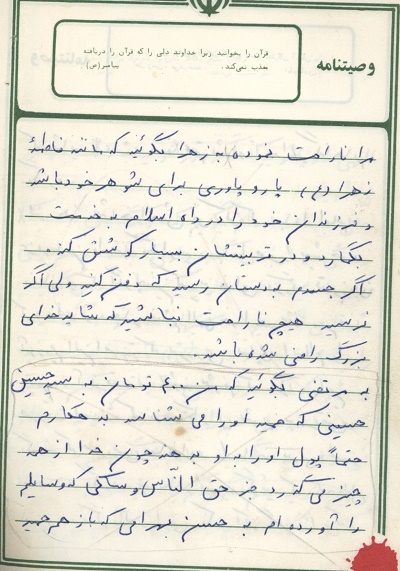 وصیتنامه
قرآن را بخوانید زیرا خداوند دلی را که قرآن را دریافته
عذب نمی‌کند. پیامبر(ص)
مرا ناراحت نموده به زهرا بگوئید که مانند فاطمهٔ
زهرا (ع) یار و یاوری برای شوهر خود باشد
و فرزندان خود را در راه اسلام به خدمت
بگمارد و در تربیتشان بسیار کوشش کند.
اگر جسدم بدستتان رسید که دفن کنید ولی اگر
نرسید هیچ ناراحت نباشید که شاید خدای
بزرگ راضی شده باشد.
به مرتضی بگوئید که من ۶۰۰ تومان به سید حسین
حسینی که حمید او را می شناسد بدهکارم
حتماً پول او را به او بدهند چون خدا از همه
چیز می گذرد جز حق الناس و ساکی که وسایلم
را آورده ام به حسن بهرامی که باز هم حمید